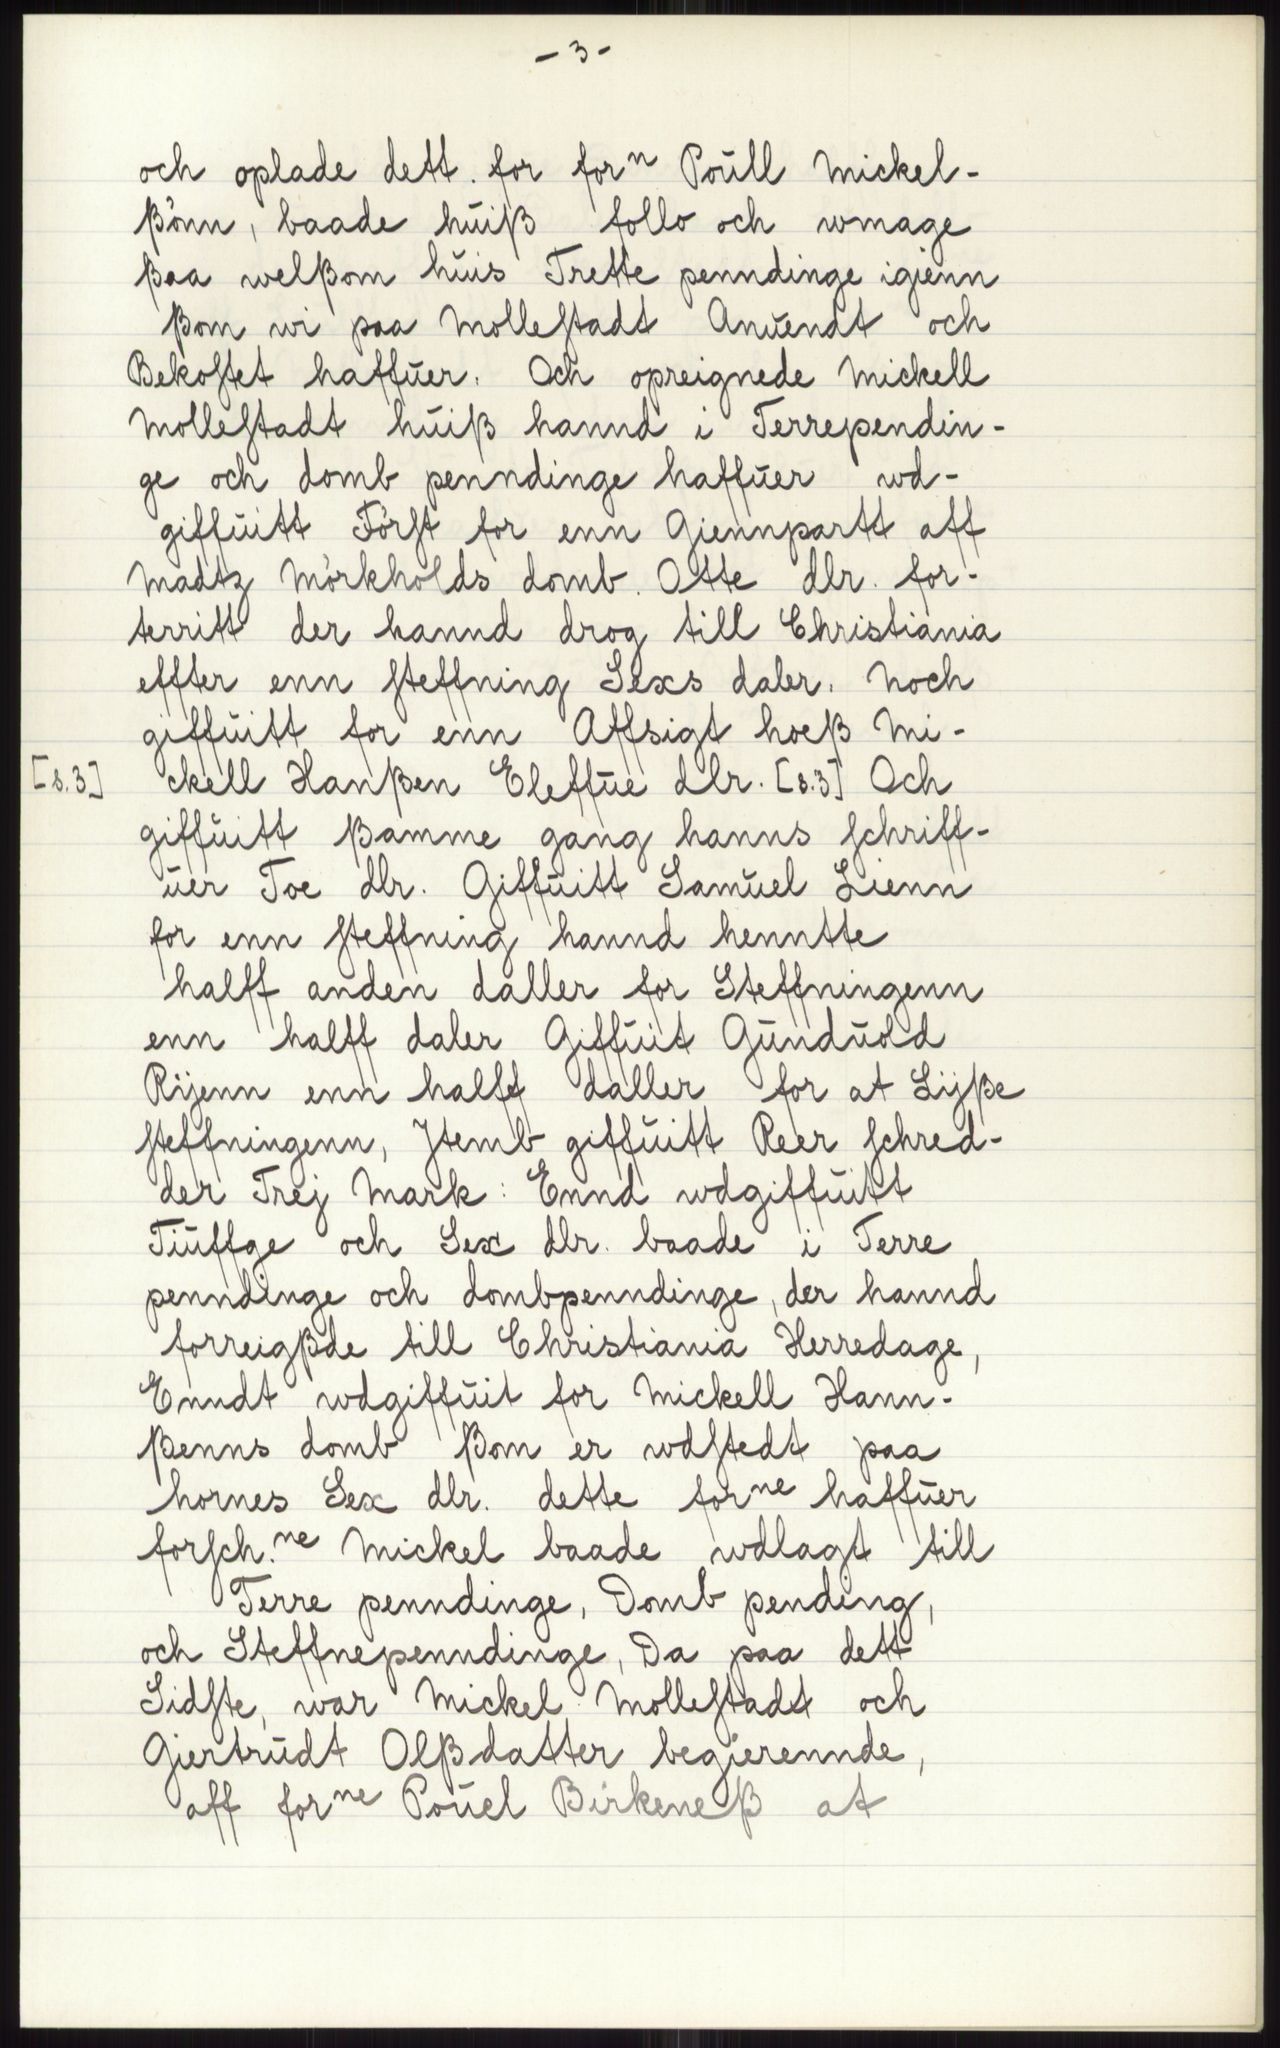 - 3 -
och oplade dett. for forn Poŭll Mickel-
ßönn, baade hŭiß follo och wmage
ßaa welßom hŭis Trette penndinge igienn
ßom wi paa Mollestadt Anŭendt och
Bekostet haffŭer. Och opreignede Mickell
Mollestadt hŭiß hannd i Terrependin-
ge och domb penndinge haffŭer wd-
giffŭitt Först for enn Giennpartt aff
Madtz Mörkholds domb. Otte dlr. for-
territt der hannd drog till Christiania
effter enn steffning Sexs daler. Noch
giffŭitt for enn Affsigt hoeß Mi-
[s.3] ckell Hanßen Eleffŭe dlr. [s.3] Och
giffŭitt ßamme gang hanns schriff-
ŭer Toe dlr. Giffŭitt Samŭel Lienn
for enn steffning hannd henntte
halff anden daller for Steffningenn
enn halff daler Giffŭit Gŭndŭold
Rÿenn enn halff daller for at Lÿße
steffningenn, Jtemb giffŭitt Reer schred-
der Trej Mark: Ennd wdgiffŭitt
Tiŭffge och Sex dlr. baade i Terre
penndinge och dombpenndinge, der hannd
forreigßde till Christiania Herredage,
Enndt wdgiffŭit for Mickell Hann-
ßenns domb ßom er wdstedt paa
hornes Sex dlr. dette forne haffŭer
forsch.ne Mickel baade wdlagt till
Terre penndinge, Domb pending,
och Steffnepenndinge, Da paa dett
Sidste, war Mickel Mollestadt och
Giertrŭdt Olßdatter begierennde,
aff forne Poŭel Birkeneß at